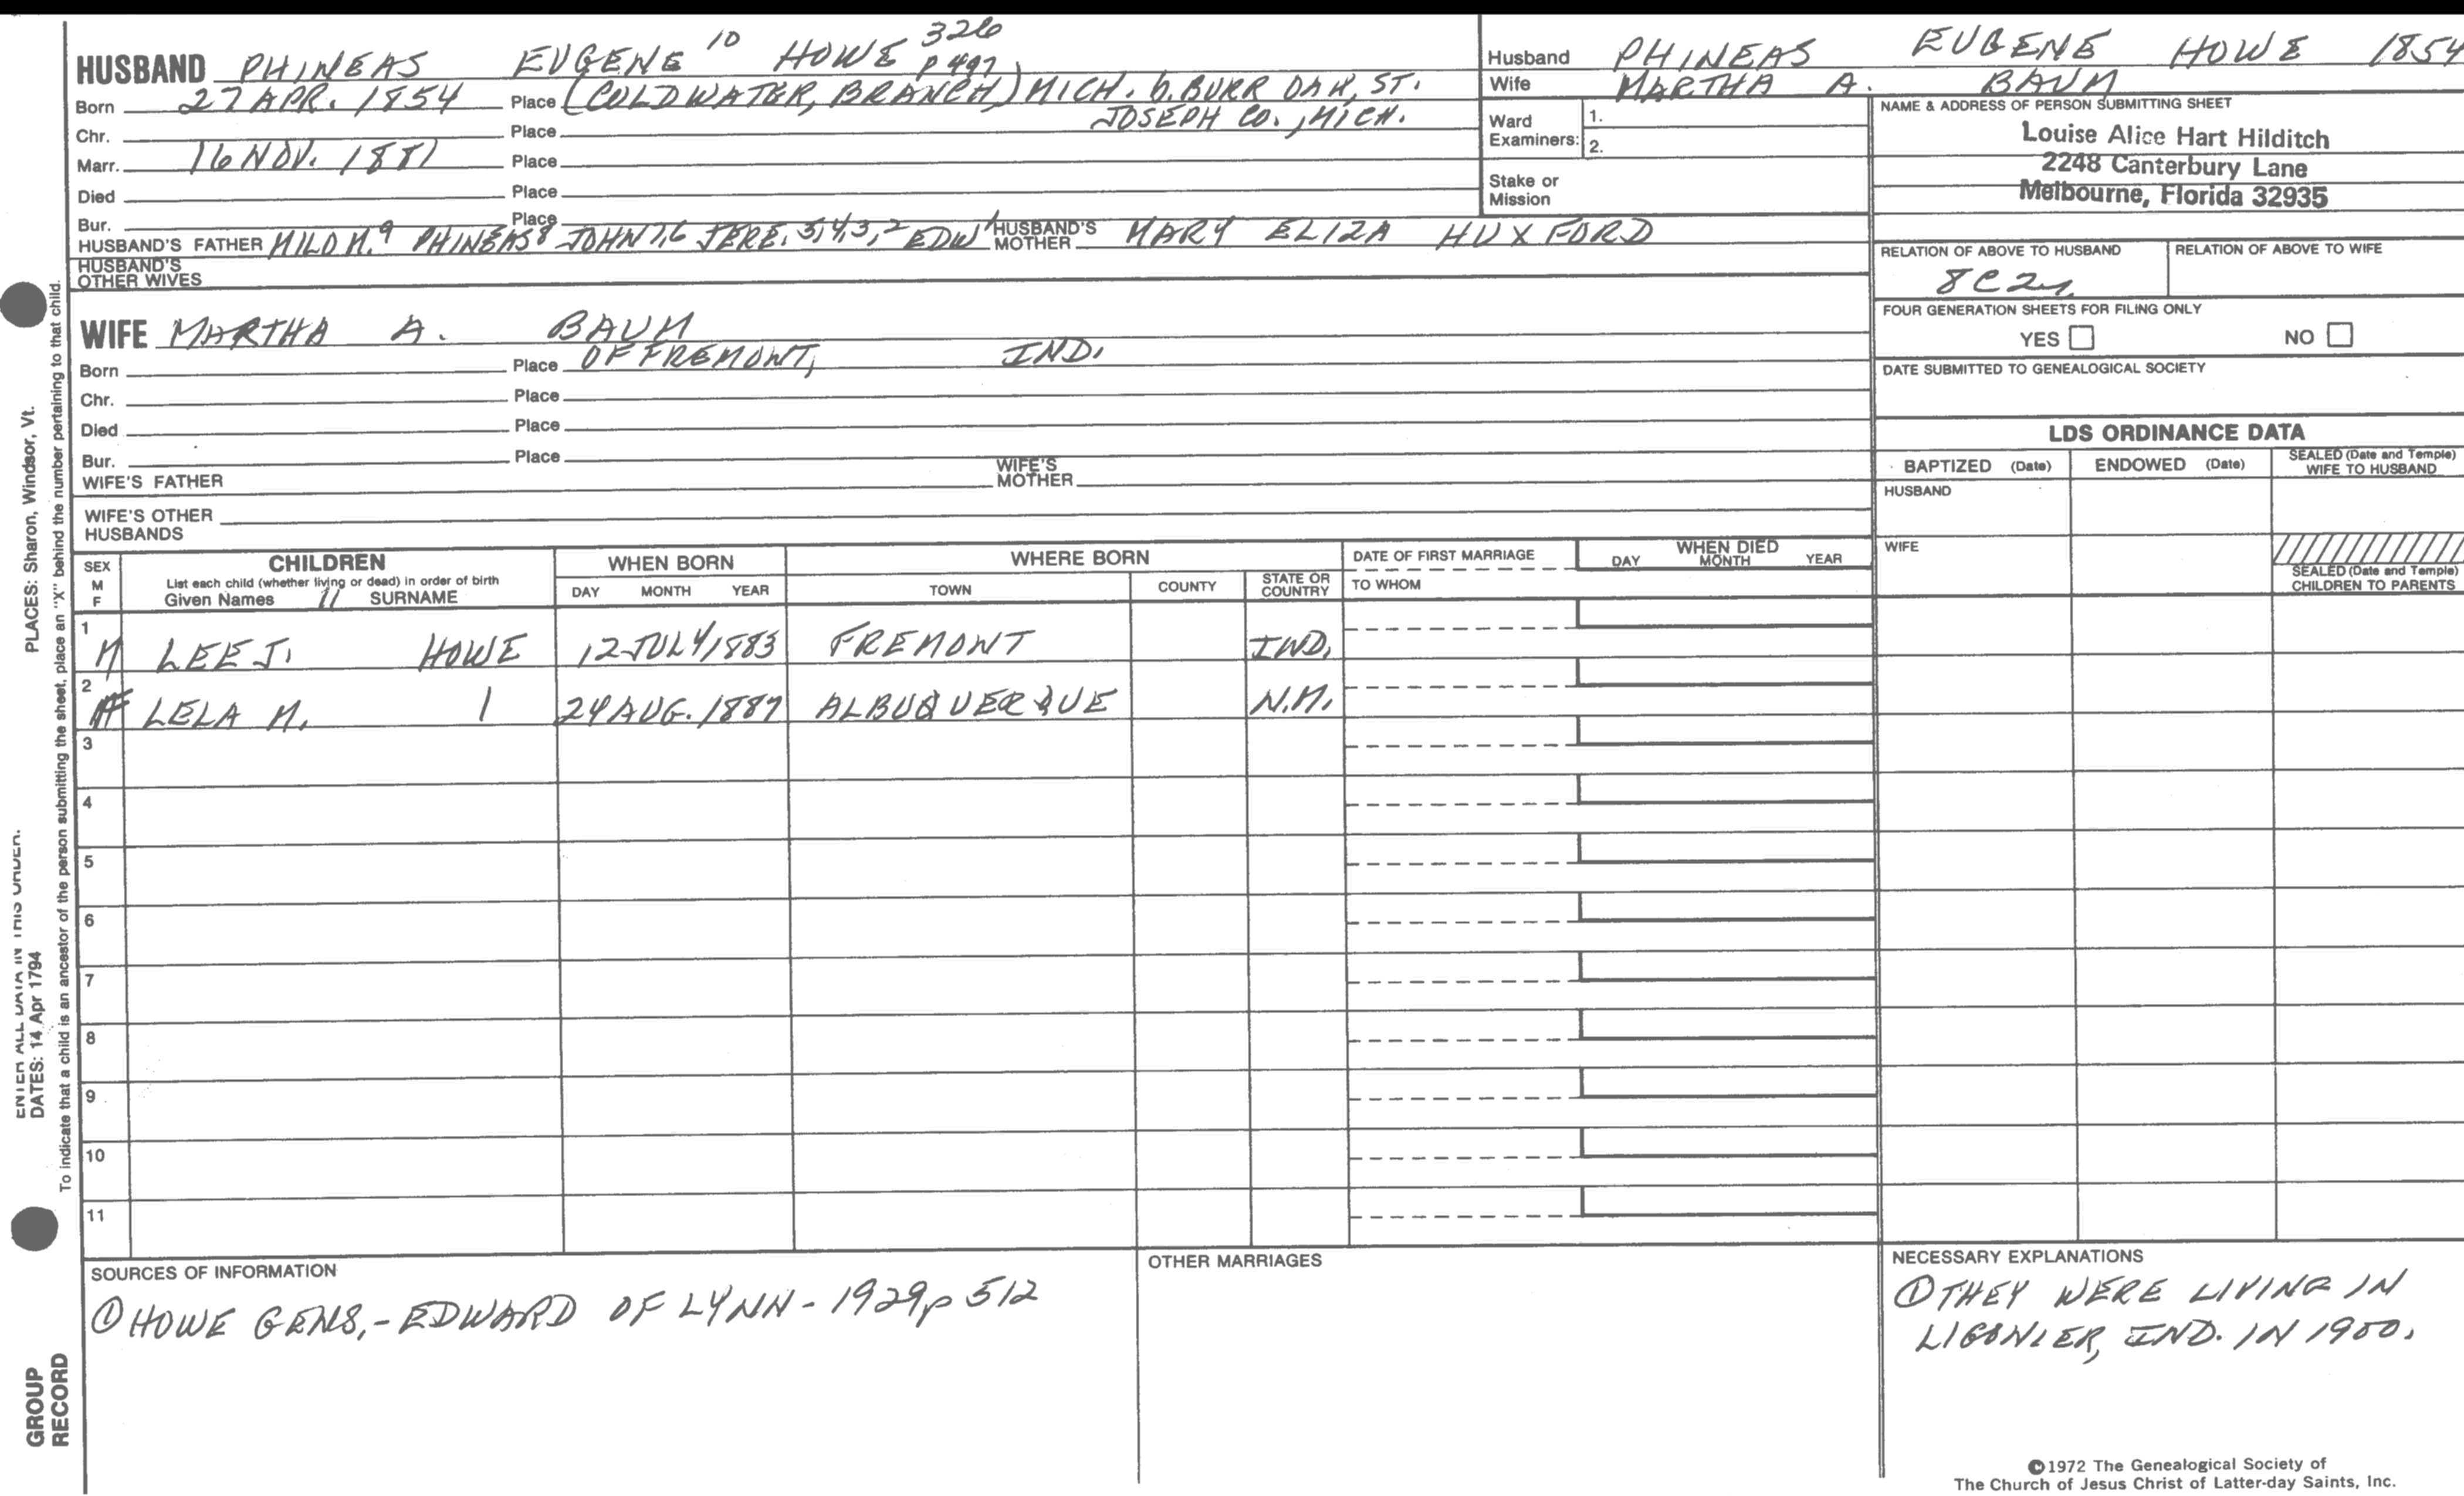 HUSBAND PHINEAS EUGENE 10 HOWE 326 p 497
Born 27 APR. 1854 Place (COLDWATER, BRANCH) MICH. b. BURR OAK, ST. JOSEPH CO., MICH.
Chr. Place
Marr. 16 NOV. 1881 Place
Died Place
Bur. Place
HUSBAND'S FATHER MILO M.9 PHINEAS8 JOHN7,6 JERE.5,4,3,2 EDW1 HUSBAND'S MOTHER MARY ELIZA HUXFORD
HUSBAND'S OTHER WIVES
WIFE MARTHA A. BAUM
Born Place OF FREMONT, IND.
Chr. Place
Died Place
Bur. Place
WIFE'S FATHER WIFE'S MOTHER
WIFE'S OTHER HUSBANDS
Husband PHINEAS EUGENE HOWE 1854
Wife MARTHA A. BAUM
Ward Examiners: 1. 2.
Stake or Mission
NAME & ADDRESS OF PERSON SUBMITTING SHEET
Louise Alice Hart Hilditch
2248 Canterbury Lane
Melbourne, Florida 32935
RELATION OF ABOVE TO HUSBAND RELATION OF ABOVE TO WIFE
8C2r
FOUR GENERATION SHEETS FOR FILING ONLY
YES NO
DATE SUBMITTED TO GENEALOGICAL SOCIETY
LDS ORDINANCE DATA
BAPTIZED (Date) ENDOWED (Date) SEALED (Date and Temple) WIFE TO HUSBAND
HUSBAND
WIFE
SEALED (Date and Temple) CHILDREN TO PARENTS
SEX M F CHILDREN WHEN BORN WHERE BORN DATE OF FIRST MARRIAGE WHEN DIED
List each child (whether living or dead) in order of birth
Given Names 11 SURNAME DAY MONTH YEAR TOWN COUNTY STATE OR COUNTRY TO WHOM DAY MONTH YEAR
1 M LEE J. HOWE 12 JULY 1883 FREMONT IND.
2 F LELA M. 1 24 AUG. 1887 ALBUQUERQUE N.M.
3
4
5
6
7
8
9
10
11
SOURCES OF INFORMATION
① HOWE GENS,- EDWARD OF LYNN - 1929, p 512
OTHER MARRIAGES
NECESSARY EXPLANATIONS
① THEY WERE LIVING IN
LIGONIER, IND. IN 1900.
©1972 The Genealogical Society of
The Church of Jesus Christ of Latter-day Saints, Inc.
PLACES: Sharon, Windsor, Vt.
ENTER ALL DATA IN THIS ORDER.
DATES: 14 Apr 1794
To indicate that a child is an ancestor of the person submitting the sheet, place an "X" behind the number pertaining to that child.
GROUP RECORD